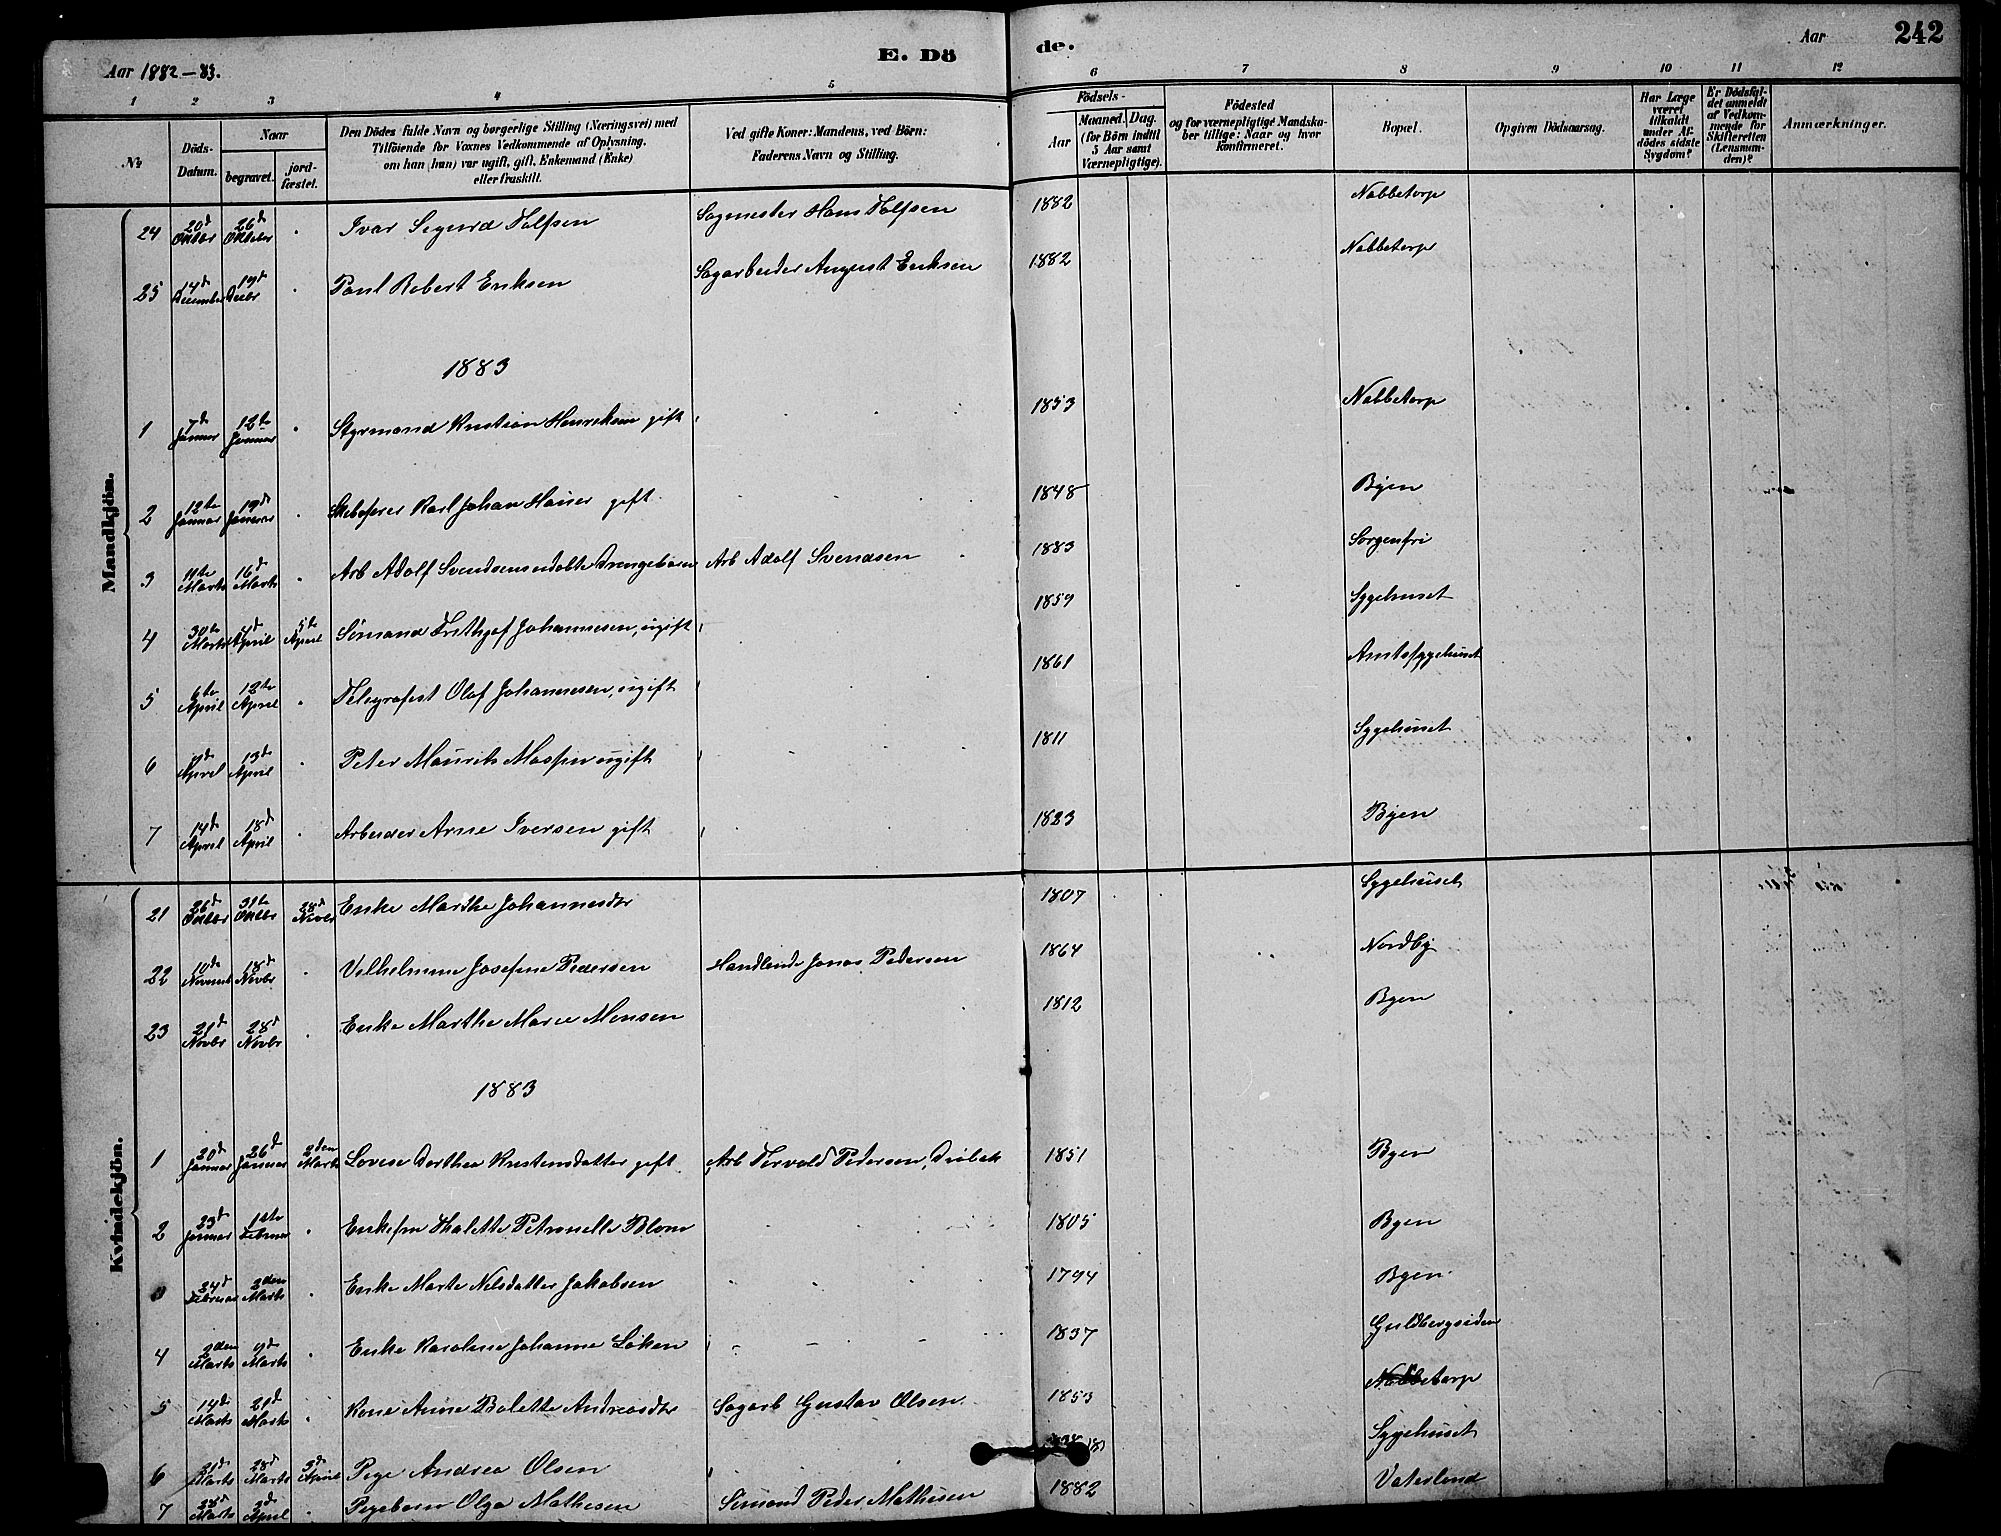 Aar 1882-83.
E. Dö
de.
Aar
242
1 2 3 4 5 6 7 8 9 10 11 12
No
Döds-Datum.
Naar
begravet.
jord-fæstet.
Den Dödes fulde Navn og borgerlige Stilling (Næringsvei) med
Tilföiende for Voxnes Vedkommende af Oplysning,
om han (hun) var ugift, gift, Enkemand (Enke)
eller fraskilt.
Ved gifte Koner: Mandens, ved Börn:
Faderens Navn og Stilling.
Födsels-
Aar
Maaned. Dag.
(for Börn indtil
5 Aar samt
Værnepligtige).
Födested
og for værnepligtige Mandska-
ber tillige: Naar og hvor
konfirmeret.
Bopæl.
Opgiven Dödsaarsag.
Har Læge
været
tilkaldt
under Af-
dödes sidste
Sygdom?
Er Dödsfal-
det anmeldt
af Vedkom-
mende for
Skifteretten
(Lensman-
den)?
Anmærkninger.
Mandkjön.
24 20d Oktbr 26d Oktober Ivar Sigurd Dolfsen Sagmester Hans Dolfsen 1882 Nabbetorp
25 14d December 19d Decbr Paul Robert Eriksen Sagarbeider August Eriksen 1882 Nabbetorp
1883
1 7d Januar 12te Januar Styrmand Kristian Henriksen gift 1853 Nabbetorp
2 12te Januar 19d Januar Skibsfører Karl Johan Hauer gift 1848 Byen
3 11te Marts 16d Marts Arb Adolf Svendsens udøbte Drengebarn Arb Adolf Svendsen 1883 Sorgenfri
4 30te Marts April 5te April Sømand Frithjof Johannesen, ugift 1859 Sygehuset
5 6te April 12te April Telegrafist Olaf Johannesen, ugift 1861 Amtssygehuset
6 April 13d April Peter Maurits ugift 1811 Sygehuset
7 14d April 18d April Arbeider Arne Iversen gift 1823 Byen
Kvindekjön.
21 26d Oktbr 31te Oktbr 28d Novbr Enke Marthe Johannesdtr 1807 Sygehuset
22 10de Novemb 18d Novbr Vilhelmine Josefine Pedersen Handlende Jonas Pedersen 1864 Nordby
23 21d Novbr 28d Novbr Enke Marthe Marie Monsen 1812 Byen
1883
1 20d Januar 26d Januar 2den Marts Lovise Dorthea Kristensdatter gift Arb Torvald Pedersen, Drøbak 1851 Byen
2 23d Januar 1ste Februar Enkefru Halette Petronelle Blom 1805 Byen
3 24d Februar 2den Marts Enke Marte Nilsdatter Jakobsen 1794 Byen
4 2den Marts 9d Marts Enke Karoline Johanne Løken 1837 Guldbergsiden
5 14d Marts 21d Marts Kone Anne Bolette Andreasdtr Sagarb Gustav Olsen 1853 Nabbetorp
6 21d Marts 28d Marts 3d April Pige Andrea Olsen Sygehuset
7 28d Marts 2d April Pigebarn Olga Mathisen Sømand Peder Mathisen 1882 Vaterland